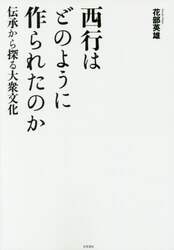 花部英雄
西行は
どのように
作られたのか
伝承から探る大衆文化